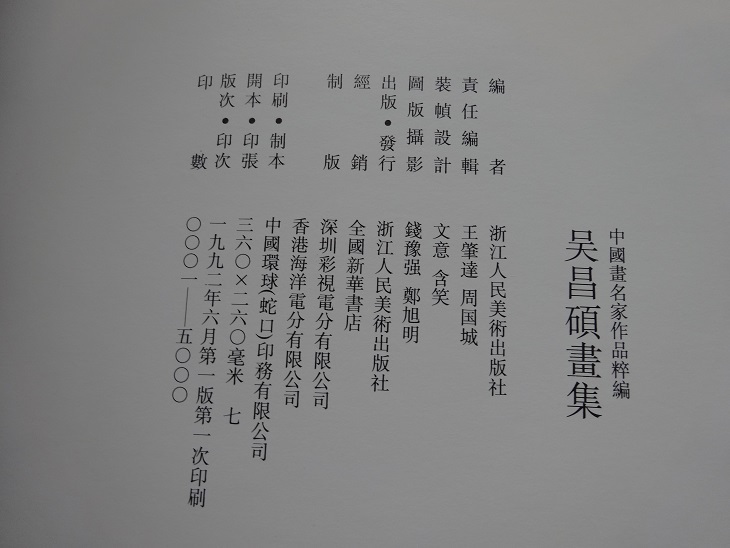 中國畫名家作品粹編
吴昌碩畫集
編者 浙江人民美術出版社
責任編輯 王肇達 周国城
裝幀設計 文意 含笑
圖版攝影 錢豫强 鄭旭明
出版•發行 浙江人民美術出版社
經銷 全國新華書店
制版 深圳彩視電分有限公司
香港海洋電分有限公司
印刷•制本 中國環球(蛇口)印務有限公司
開本•印張 三六〇×二六〇毫米 七
版次•印次 一九九二年六月第一版第一次印刷
印數 〇〇〇一——五〇〇〇